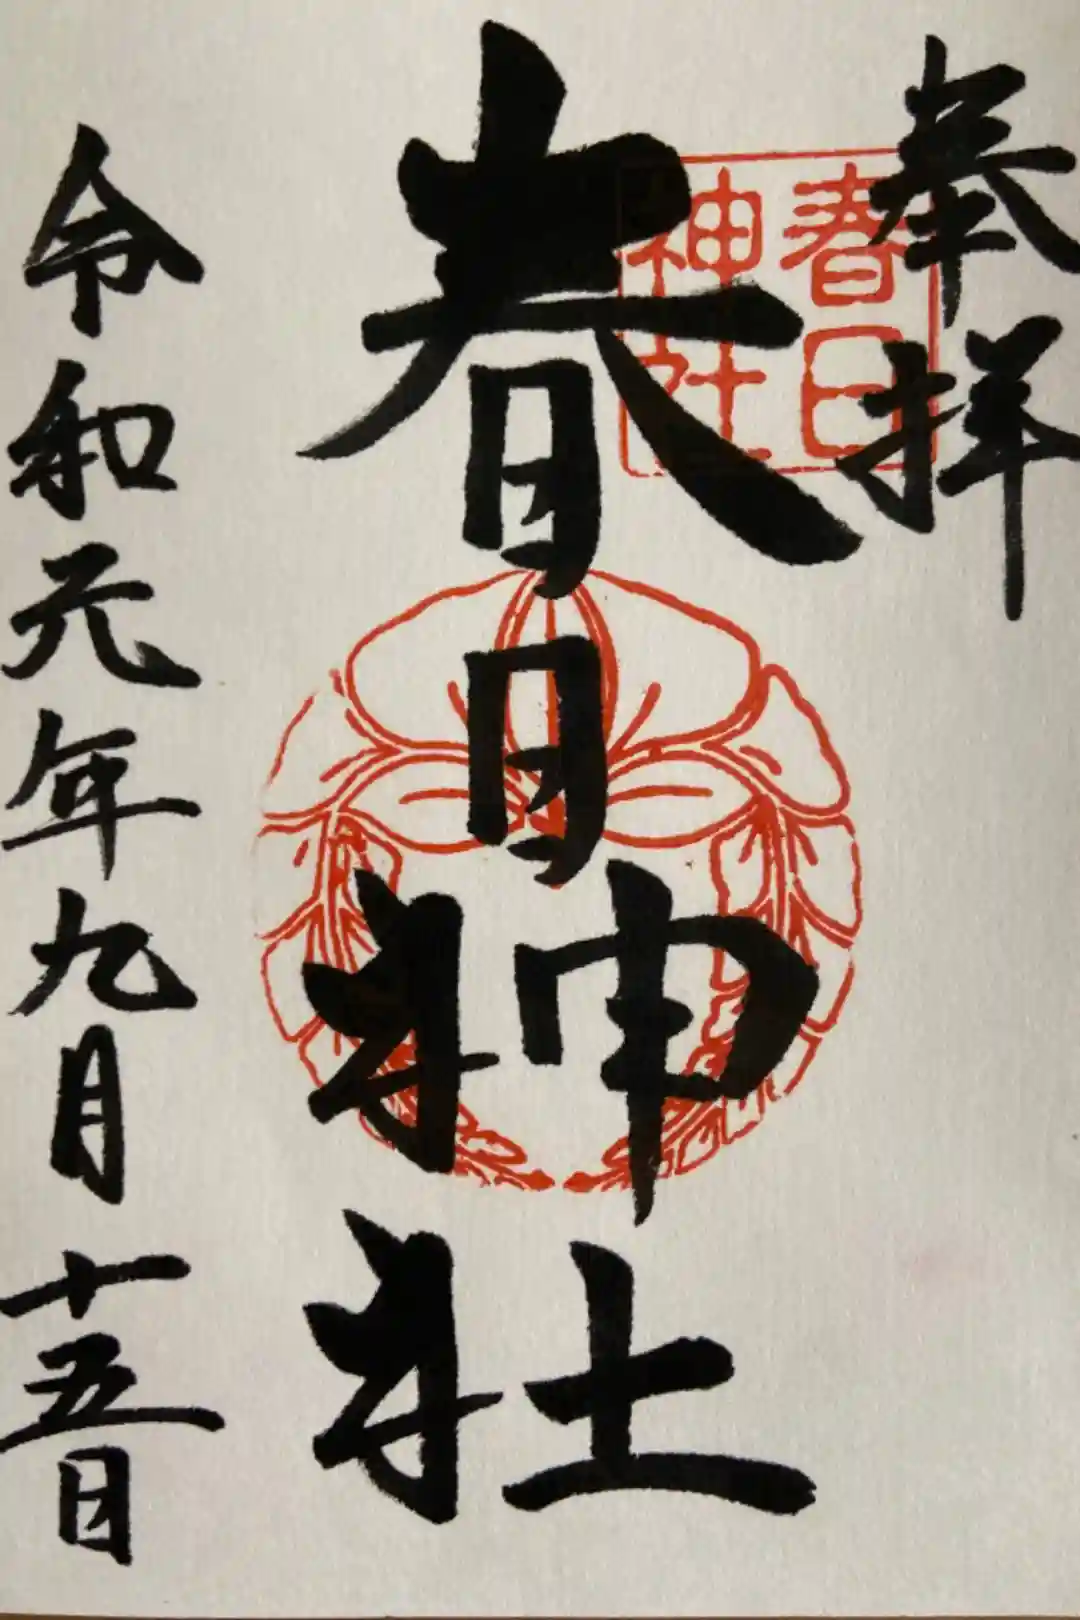 奉拝
春日
神社
春日神社
令和元年九月十五日